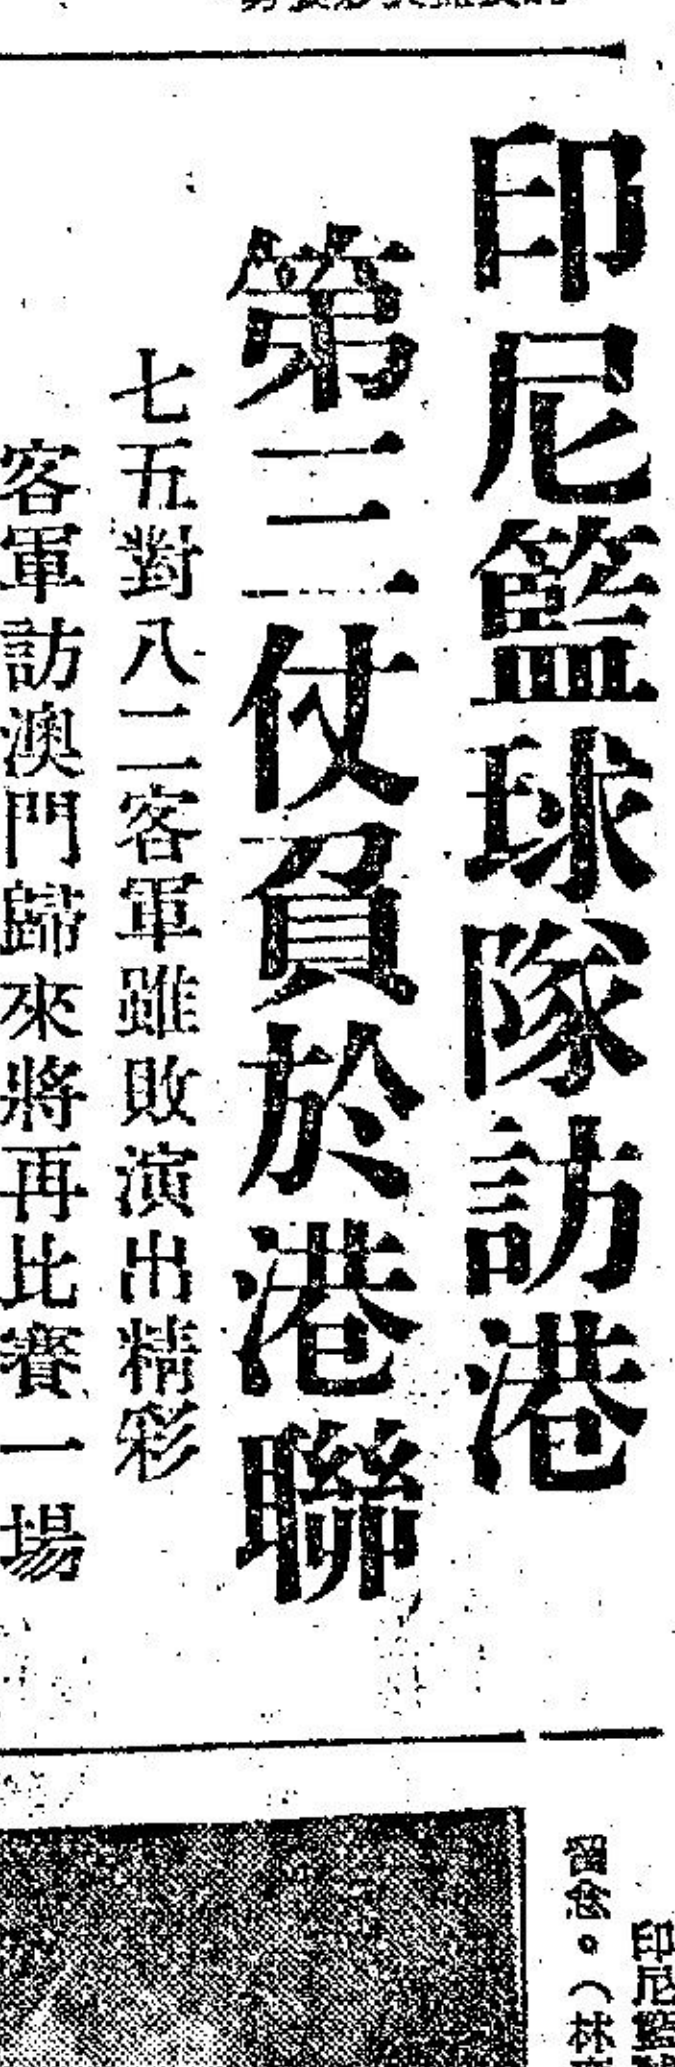 印尼籃球隊訪港
第三仗負於港聯
七五對八二客軍雖敗演出精彩
客軍訪澳門歸來將再比賽一場
印尼籃
留念。（林